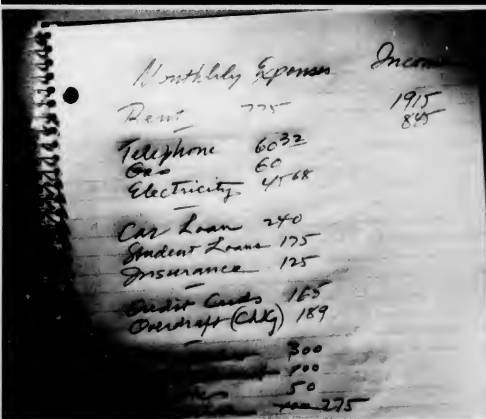 Monthly Expenses Income
Rent 775 1915
845
Telephone 60 32
Gas 60
Electricity 45 68
Car Loan 240
Student Loans 175
Insurance 125
Credit Cards 165
Overdraft (Chkg) 189
300
50
275